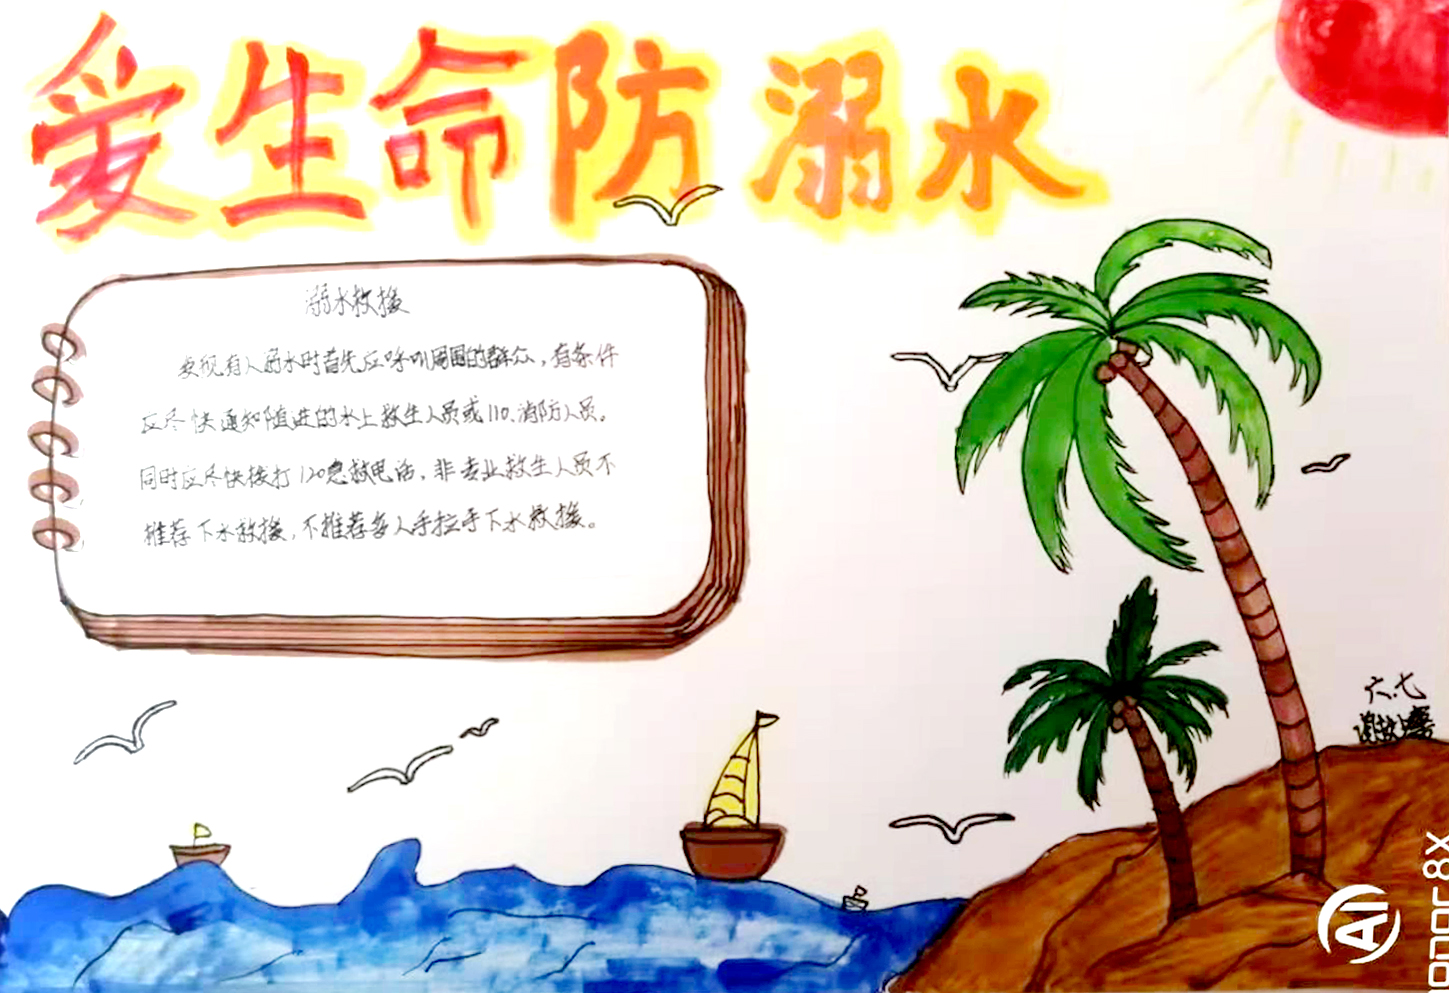 爱生命防溺水
溺水救援
发现有人溺水时首先应呼叫周围的群众，有条件
应尽快通知附近的水上救生人员或110、消防人员。
同时应尽快拨打120急救电话，非专业救生人员不
推荐下水救援，不推荐多人手拉手下水救援。
六.七
AI
honor 8X